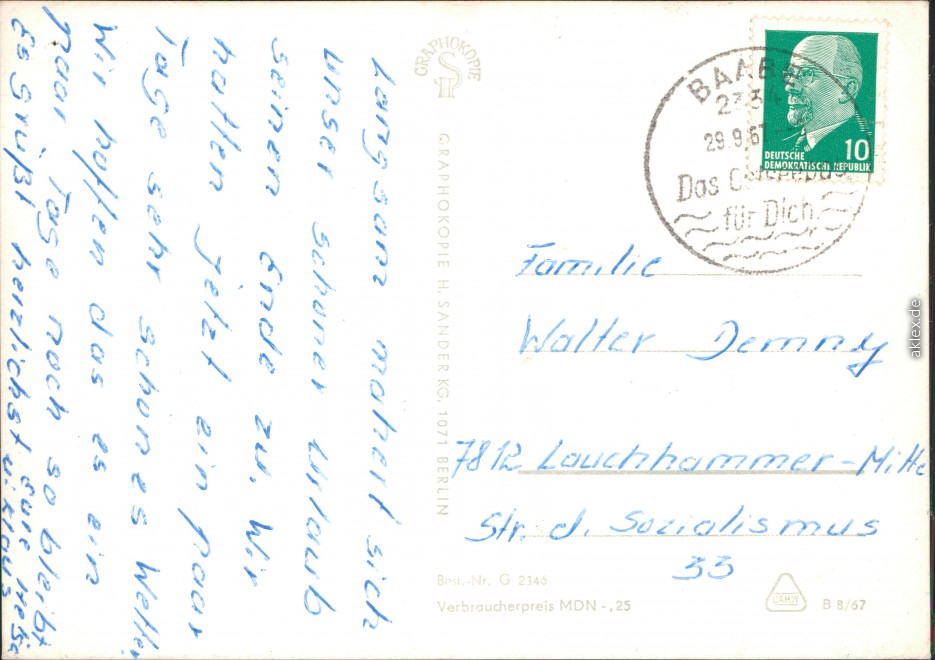 Langsam nahert sich
unser schoner Urlaub
seinen Ende zu. Wir
hatten jetzt ein paar
Tage sehr schones Wetter
Wir hoffen das es ein
paar Tage noch so bleibt
Es grüßt herzlichst Eure
u. Klaus
GRAPHOKOPIE
GRAPHOKOPIE H. SANDER KG, 1071 BERLIN
BAABE
2334
29.9.67
Das Ostseebad
für Dich
10
DEUTSCHE
DEMOKRATISCHE REPUBLIK
Familie
Walter Demny
7812 Lauchhammer-Mitte
Str. d. Sozialismus
33
Best.-Nr. G 2346
Verbraucherpreis MDN -,25
B 8/67
aklex.de